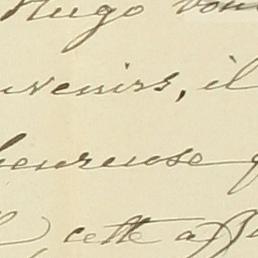 Hugo vou
uvenirs, il
heureuse
cette aff